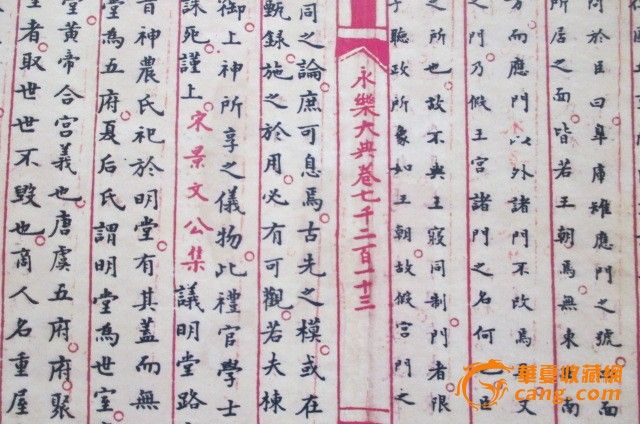 問於臣曰皋庫雉應門之號 而
所居之面皆若王朝焉無東 南
方而應門 以外諸門不改焉 又
之門乃假王宮諸門之名何 臣
之所也故不與王寢同制門者限
聽政所象如王朝故假宮門之
永樂大典卷七千二百一十三
同之論庶可息焉古先之模或在
甄錄施之於用必有可觀若夫棟
御上神所享之儀物此禮官學士
誅死謹上宋景文公集議明堂路
昔神農氏祀於明堂有其蓋而無
堂為五府夏后氏謂明堂為世室
堂黃帝合宮義也唐虞五府府聚
者取世世不毀也商人名重屋
華夏收藏網
cang.com